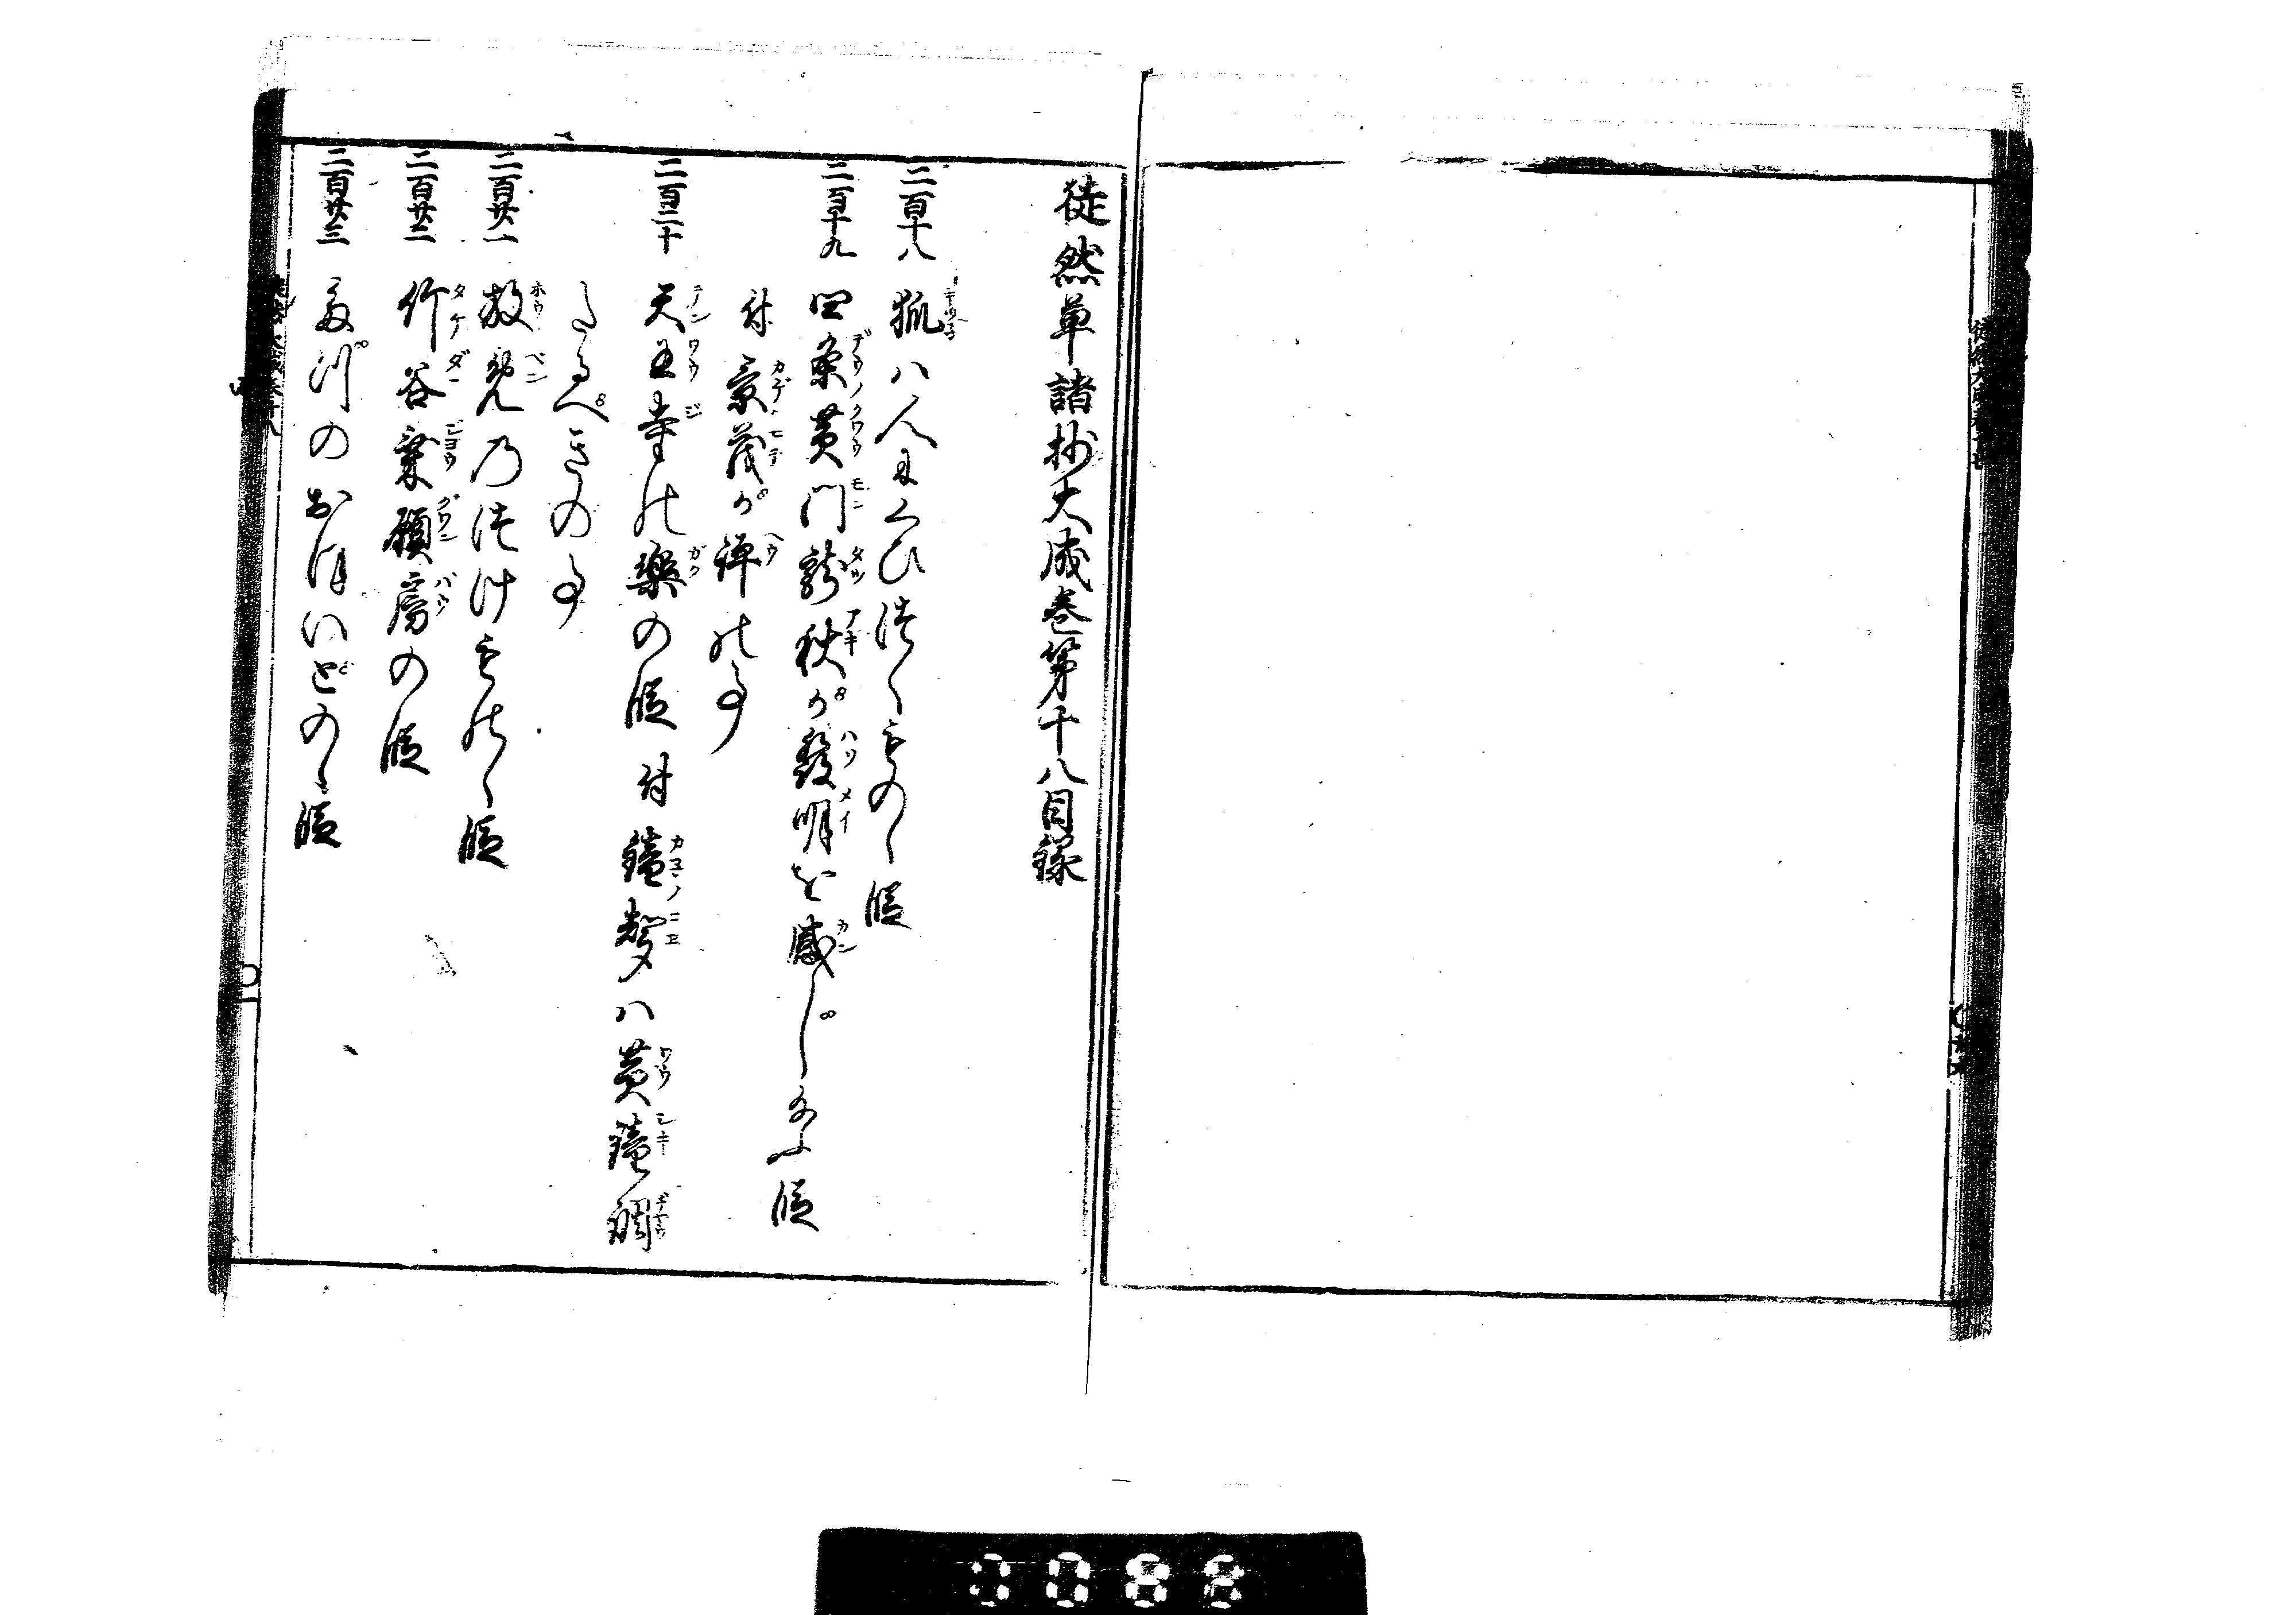 徒然草諸抄大成巻第十八目録
二百十八 狐ハ人にくひつくものゝ段
二百十九 四条黄門龍秋が發明を感じ給ふ段
付 景茂が評の事
二百二十 天王寺の樂の段 付 鐘聲ハ黄鐘調
たるべきの事
二百廿一 放免のつけものゝ段
二百廿二 竹谷乗願房の段
二百廿三 たづのおほいどのゝ段
0082